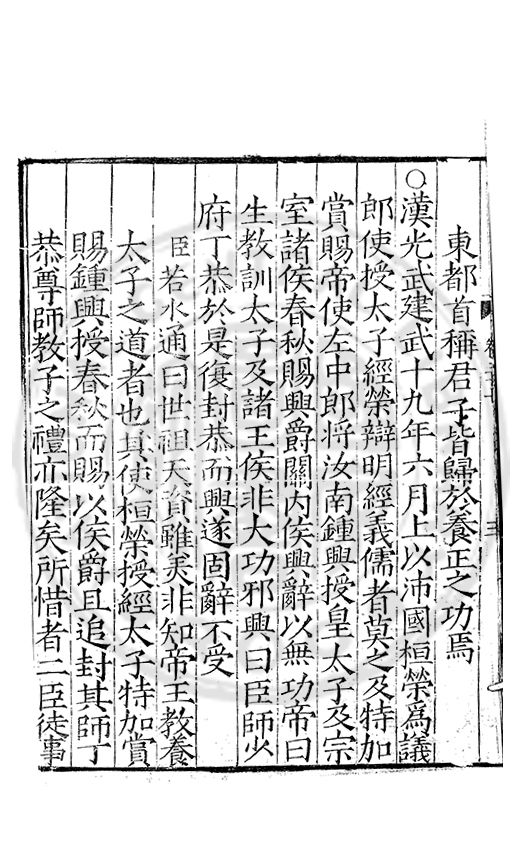 東都首稱君子皆歸於養正之功焉
○漢光武建武十九年六月上以沛國桓榮爲議
郎使授太子經榮辯明經義儒者莫之及特加
賞賜帝使左中郎將汝南鍾興授皇太子及宗
室諸侯春秋賜興爵關內侯興辭以無功帝曰
生教訓太子及諸王侯非大功邪興曰臣師少
府丁恭於是復封恭而興遂固辭不受
臣若水通曰世祖天資雖美非知帝王教養
太子之道者也其使桓榮授經太子特加賞
賜鍾興授春秋而賜以侯爵且追封其師丁
恭尊師教子之禮亦隆矣所惜者二臣徒事